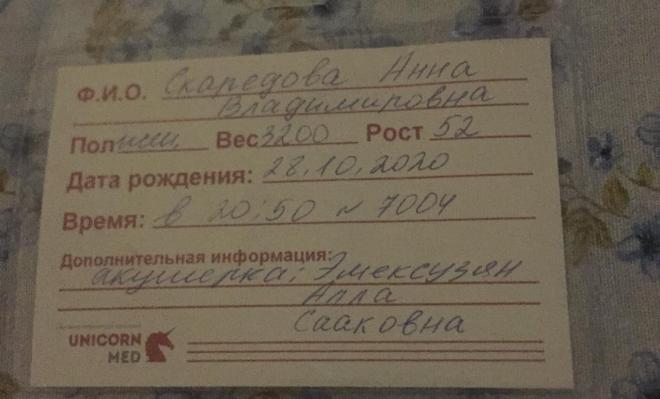 Ф.И.О. Скаредова Анна
Владимировна
Пол жен. Вес 3200 Рост 52
Дата рождения: 28.10.2020
Время: в 20:50 № 7004
Дополнительная информация:
акушерка: Эмексузян
Алла
Сааковна
UNICORN
MED